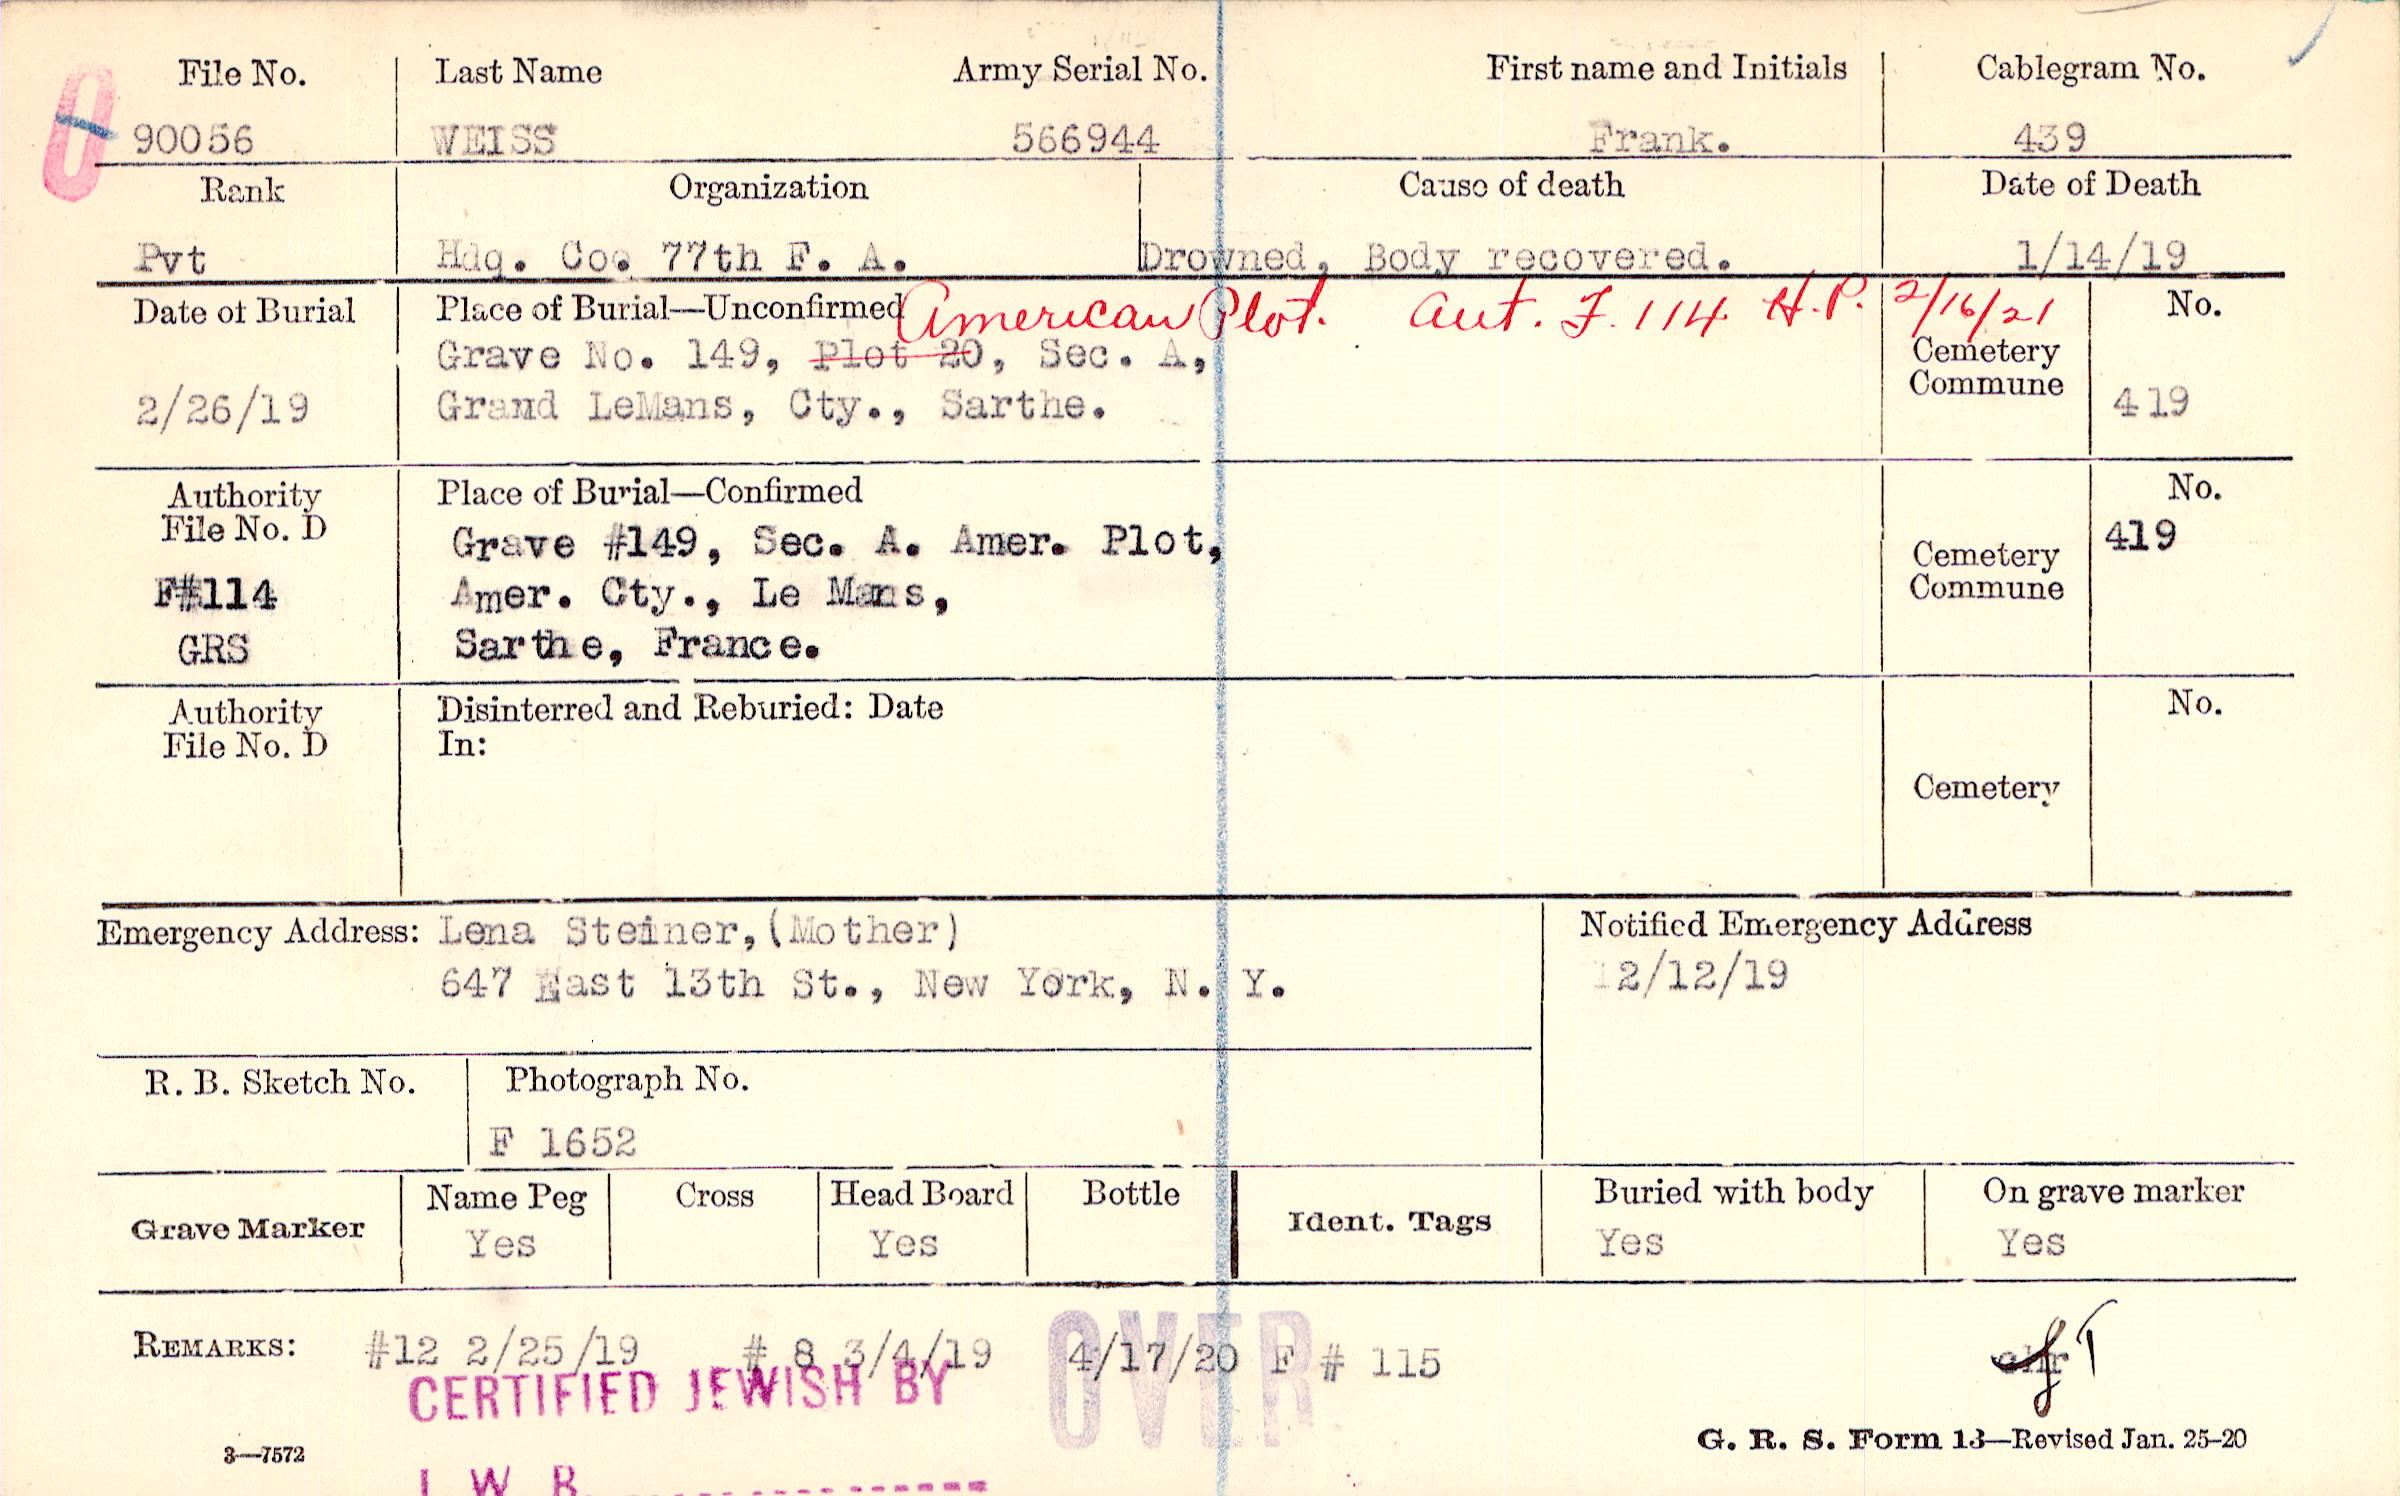 File No. Last Name Army Serial No. First name and Initials Cablegram No.
90056 WEISS 566944 Frank. 439
Rank Organization Cause of death Date of Death
Pvt Hdq. Co. 77th F. A. Drowned, Body recovered. 1/14/19
Date of Burial Place of Burial—Unconfirmed American Plot. Aut. F. 114 H.P. 2/16/21 No.
Grave No. 149, Plot 20, Sec. A, Cemetery
2/26/19 Grand LeMans, Cty., Sarthe. Commune 419
Authority Place of Burial—Confirmed No.
File No. D Grave #149, Sec. A. Amer. Plot, Cemetery 419
F#114 Amer. Cty., Le Mans, Commune
GRS Sarthe, France.
Authority Disinterred and Reburied: Date No.
File No. D In:
Cemetery
Emergency Address: Lena Steiner, (Mother) Notified Emergency Address
647 East 13th St., New York, N. Y. 12/12/19
R. B. Sketch No. Photograph No.
F 1652
Grave Marker Name Peg Cross Head Board Bottle Ident. Tags Buried with body On grave marker
Yes Yes Yes Yes
REMARKS: #12 2/25/19 # 8 3/4/19 4/17/20 F # 115
OVER
CERTIFIED JEWISH BY
3—7572 G. R. S. Form 13—Revised Jan. 25-20
J. W. B.